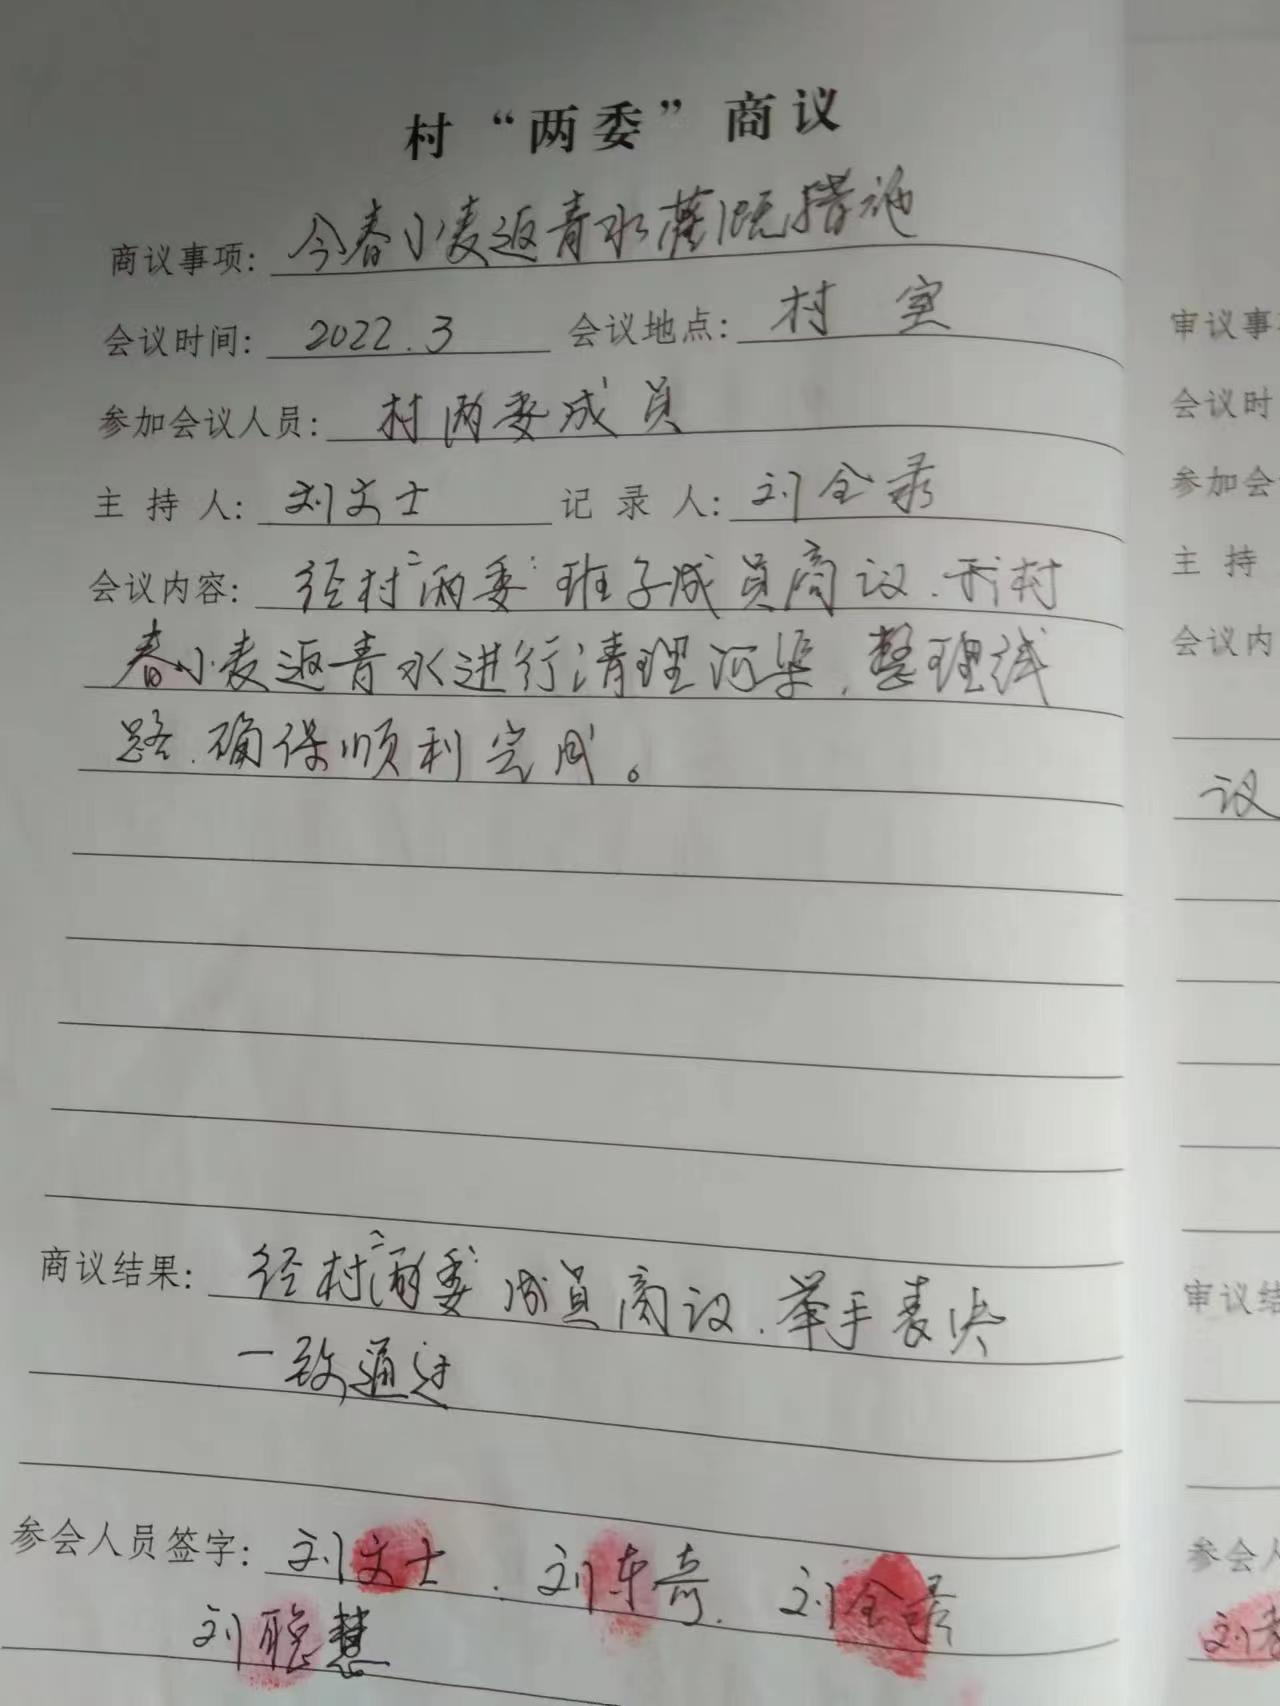 村“两委”商议
商议事项：今春小麦返青水灌溉措施
会议时间：2022.3 会议地点：村室
参加会议人员：村两委成员
主持人：刘文士 记录人：刘全录
会议内容：经村“两委”班子成员商议.我村
春小麦返青水进行清理河渠，整理线
路.确保顺利完成。
商议结果：经村“两委”成员商议.举手表决
一致通过
参会人员签字：刘文士.刘东奇.刘全录
刘聪慧
审议事
会议时
参加会
主持
会议内
议
审议结
参会人
刘